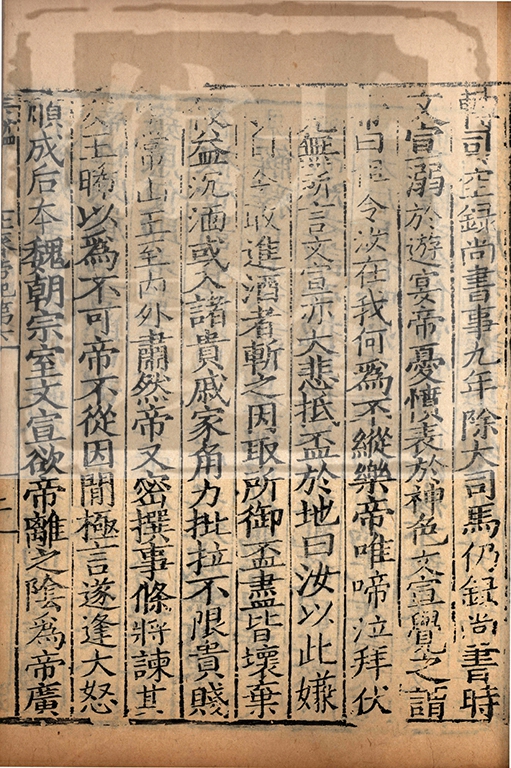 轉司空録尚書事九年除大司馬仍録尚書時
文宣溺於遊宴帝憂憤表於神色文宣覺之謂
曰但令汝在我何爲不縱樂帝唯啼泣拜伏
竟無所言文宣亦大悲抵盃於地曰汝以此嫌
自今敢進酒者斬之因取所御盃盡皆壞棄
後益沉湎或入諸貴戚家角力批拉不限貴賤
唯常山王至内外肅然帝又密撰事條將諫其
友王晞以爲不可帝不從因閒極言遂逢大怒
順成后本魏朝宗室文宣欲帝離之陰為帝廣